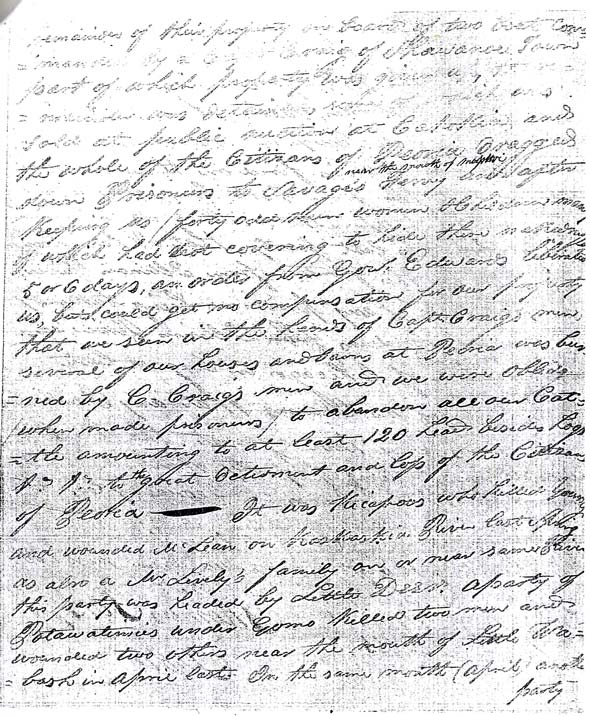 remainder of their property on board of two boat com
=manded by a Craig of Shawanoe Town
part of which property was
=mainder was detained some of which was
sold at public auction at Cahokia and
the whole of the Citizans of Peoria Dragged
near the mouth of
down Prisoners to Savage's Ferry and after
Keeping us (forty odd men women & Children many
of which had not covering to hide their nakedness
5 or 6 days, an order from Gov.r Edwards liberated
us, but could get no compensation for our property
that we seen in the hands of Capt. Craigs men,
several of our houses and barns at Peoria was bur
=ned by C. Craig's men and we were Oblidg
when made prisoners, to abandon all our Cat=
=tle amounting to at least 120 head besides hogs
&c &c to the great Detriment and loss of the Citizans
of Peoria — It was Kicapoos who killed Young
and wounded McLean on Kaskaskia River last
as also a Mr Lively's family on or near same River
this party was headed by Little Deer. A party of
Potawatemies under Gomo killed two men and
wounded two others near the mouth of Little Wa=
=bash in April last In the same month (April) another
party